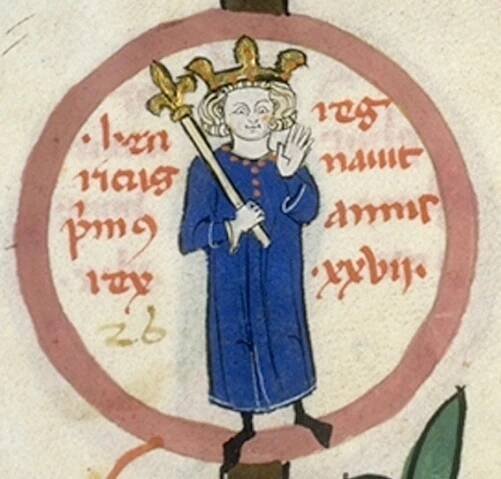 ·hen
ricus
p̄mꝯ
rex
26
reg
nauit
annis
·xxvii·